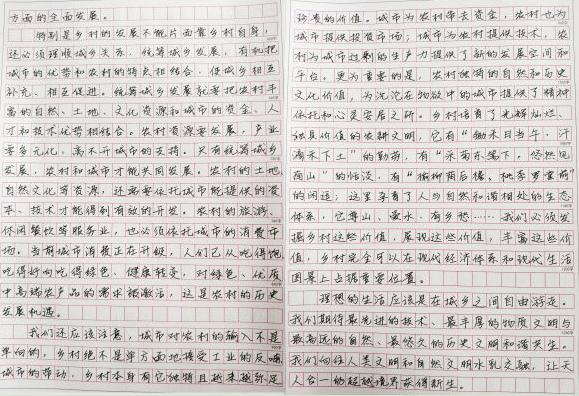 方面的全面发展。
特别是乡村的发展不能片面靠乡村自身，
还必须理顺城乡关系，统筹城乡发展，有机把
城市的优势和农村的特点相结合，使城乡相互
补充、相互促进。统筹城乡发展就要把农村丰
富的自然、土地、文化资源和城市的资金、人
才和技术优势相结合。农村资源要发展，产业
要多元化，离不开城市的支持。只有统筹城乡
发展，农村和城市才能共同发展。农村的土地、
自然文化等资源，还需要依托城市能提供的资
本、技术才能得到有效的开发。农村的旅游、
休闲餐饮等服务业，也必须依托城市的消费市
场。当前城市消费正在升级，人们已从吃得饱
吃得好向吃得绿色、健康转变，对绿色、优质
中高端农产品的需求被激活，这是农村的历史
发展机遇。
我们还应该注意，城市对农村的输入不是
单向的，乡村绝不是单方面地接受工业的反哺，
城市的带动，乡村本身有它独特且越来越弥足
珍贵的价值。城市为农村带去资金，农村也为
城市提供投资市场；城市为农村提供技术，农
村为城市过剩的生产力提供了新的发展空间和
平台。更为重要的是，农村独特的自然和历史
文化价值，为沉沦在物欲中的城市提供了精神
依托和心灵安居之所。乡村培育了光辉灿烂、
独具价值的农耕文明，它有“锄禾日当午，汗
滴禾下土”的勤劳，有“采菊东篱下，悠然见
南山”的恬淡，有“榆柳荫后檐，桃李罗堂前”
的闲适，这里孕育了人与自然和谐相处的生态
体系，它靠山、爱水、有乡愁……我们必须发
掘乡村这些价值，展现这些价值，丰富这些价
值，乡村完全可以在现代经济体系和现代生活
图景上占据重要位置。
理想的生活应该是在城乡之间自由游走。
我们期待最先进的技术、最丰厚的物质文明与
最高远的自然、最悠久的历史文明和谐共生。
我们向往人类文明和自然文明水乳交融，让天
人合一的超越境界获得新生。